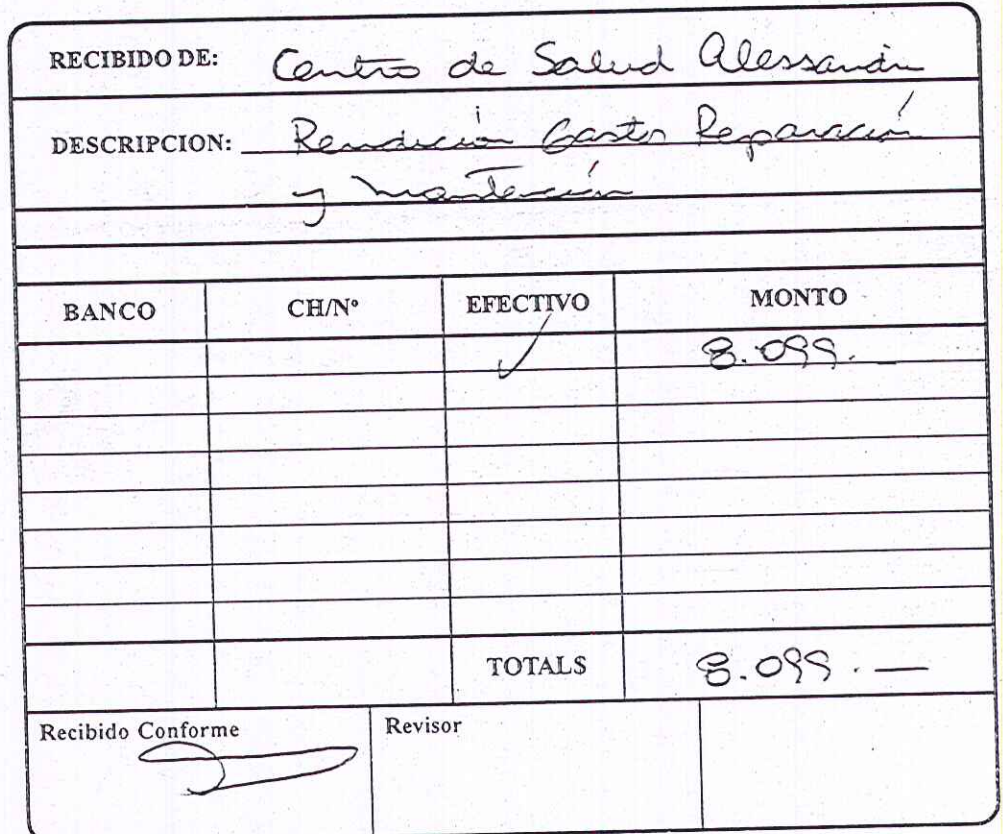 RECIBIDO DE: Centro de Salud Alessandri
DESCRIPCION: Rendición Gastos Reparación
y Mantención
BANCO CH/Nº EFECTIVO MONTO
✓ 8.099.—
TOTALS 8.099.—
Recibido Conforme Revisor